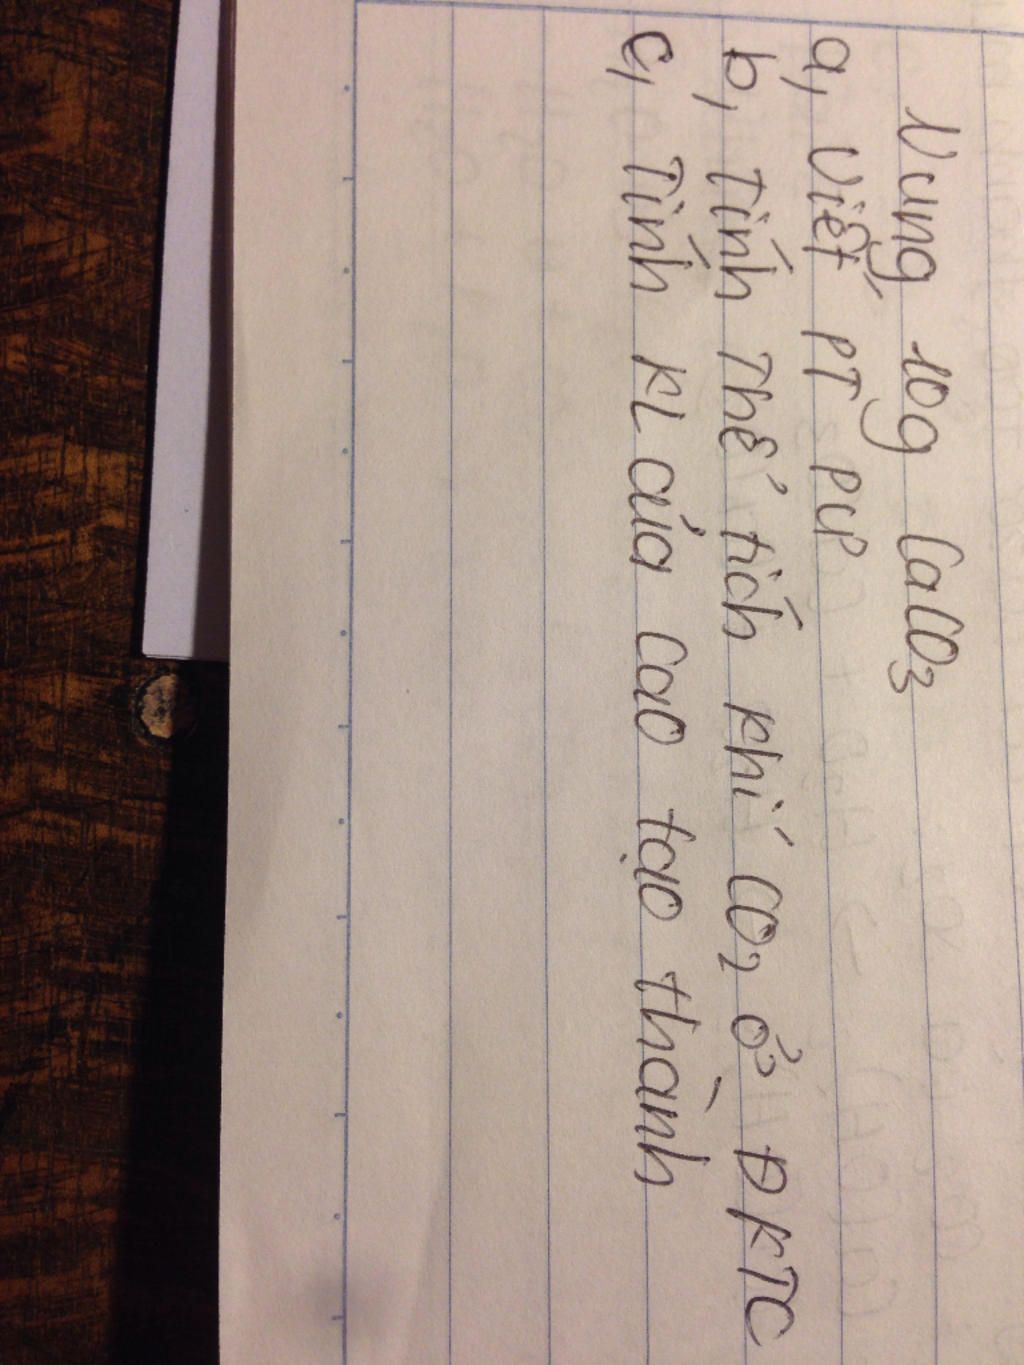 Nung 10g CaCO3
a, Viết PT PƯ
b, Tính Thể tích khí CO2 ở ĐKTC
c, Tính KL của CaO tạo thành